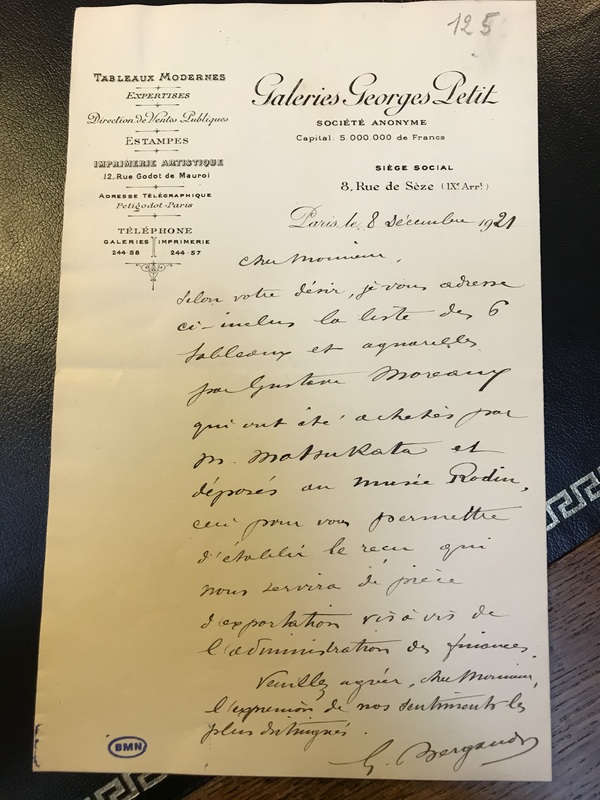 125
TABLEAUX MODERNES
EXPERTISES
Direction de Ventes Publiques
ESTAMPES
IMPRIMERIE ARTISTIQUE
12, Rue Godot de Mauroi
ADRESSE TÉLÉGRAPHIQUE
Petigodot-Paris
TÉLÉPHONE
GALERIES IMPRIMERIE
244-58 244-57
Galeries Georges Petit
SOCIÉTÉ ANONYME
Capital: 5.000.000 de Francs
SIÈGE SOCIAL
8, Rue de Sèze (IXe Arrt)
Paris, le 8 Décembre 1921
Cher Monsieur,
Selon votre désir, je vous adresse
ci-inclus la liste des 6
tableaux et aquarelles
par Gustave Moreau
qui ont été achetés par
M. Matsukata et
déposés au musée Rodin,
ceci pour vous permettre
d'établir le reçu qui
nous servira de pièce
d'exportation vis à vis de
l'administration des finances.
Veuillez agréer, cher Monsieur,
l'expression de nos sentiments les
plus distingués.
G. Bergaud
BMN